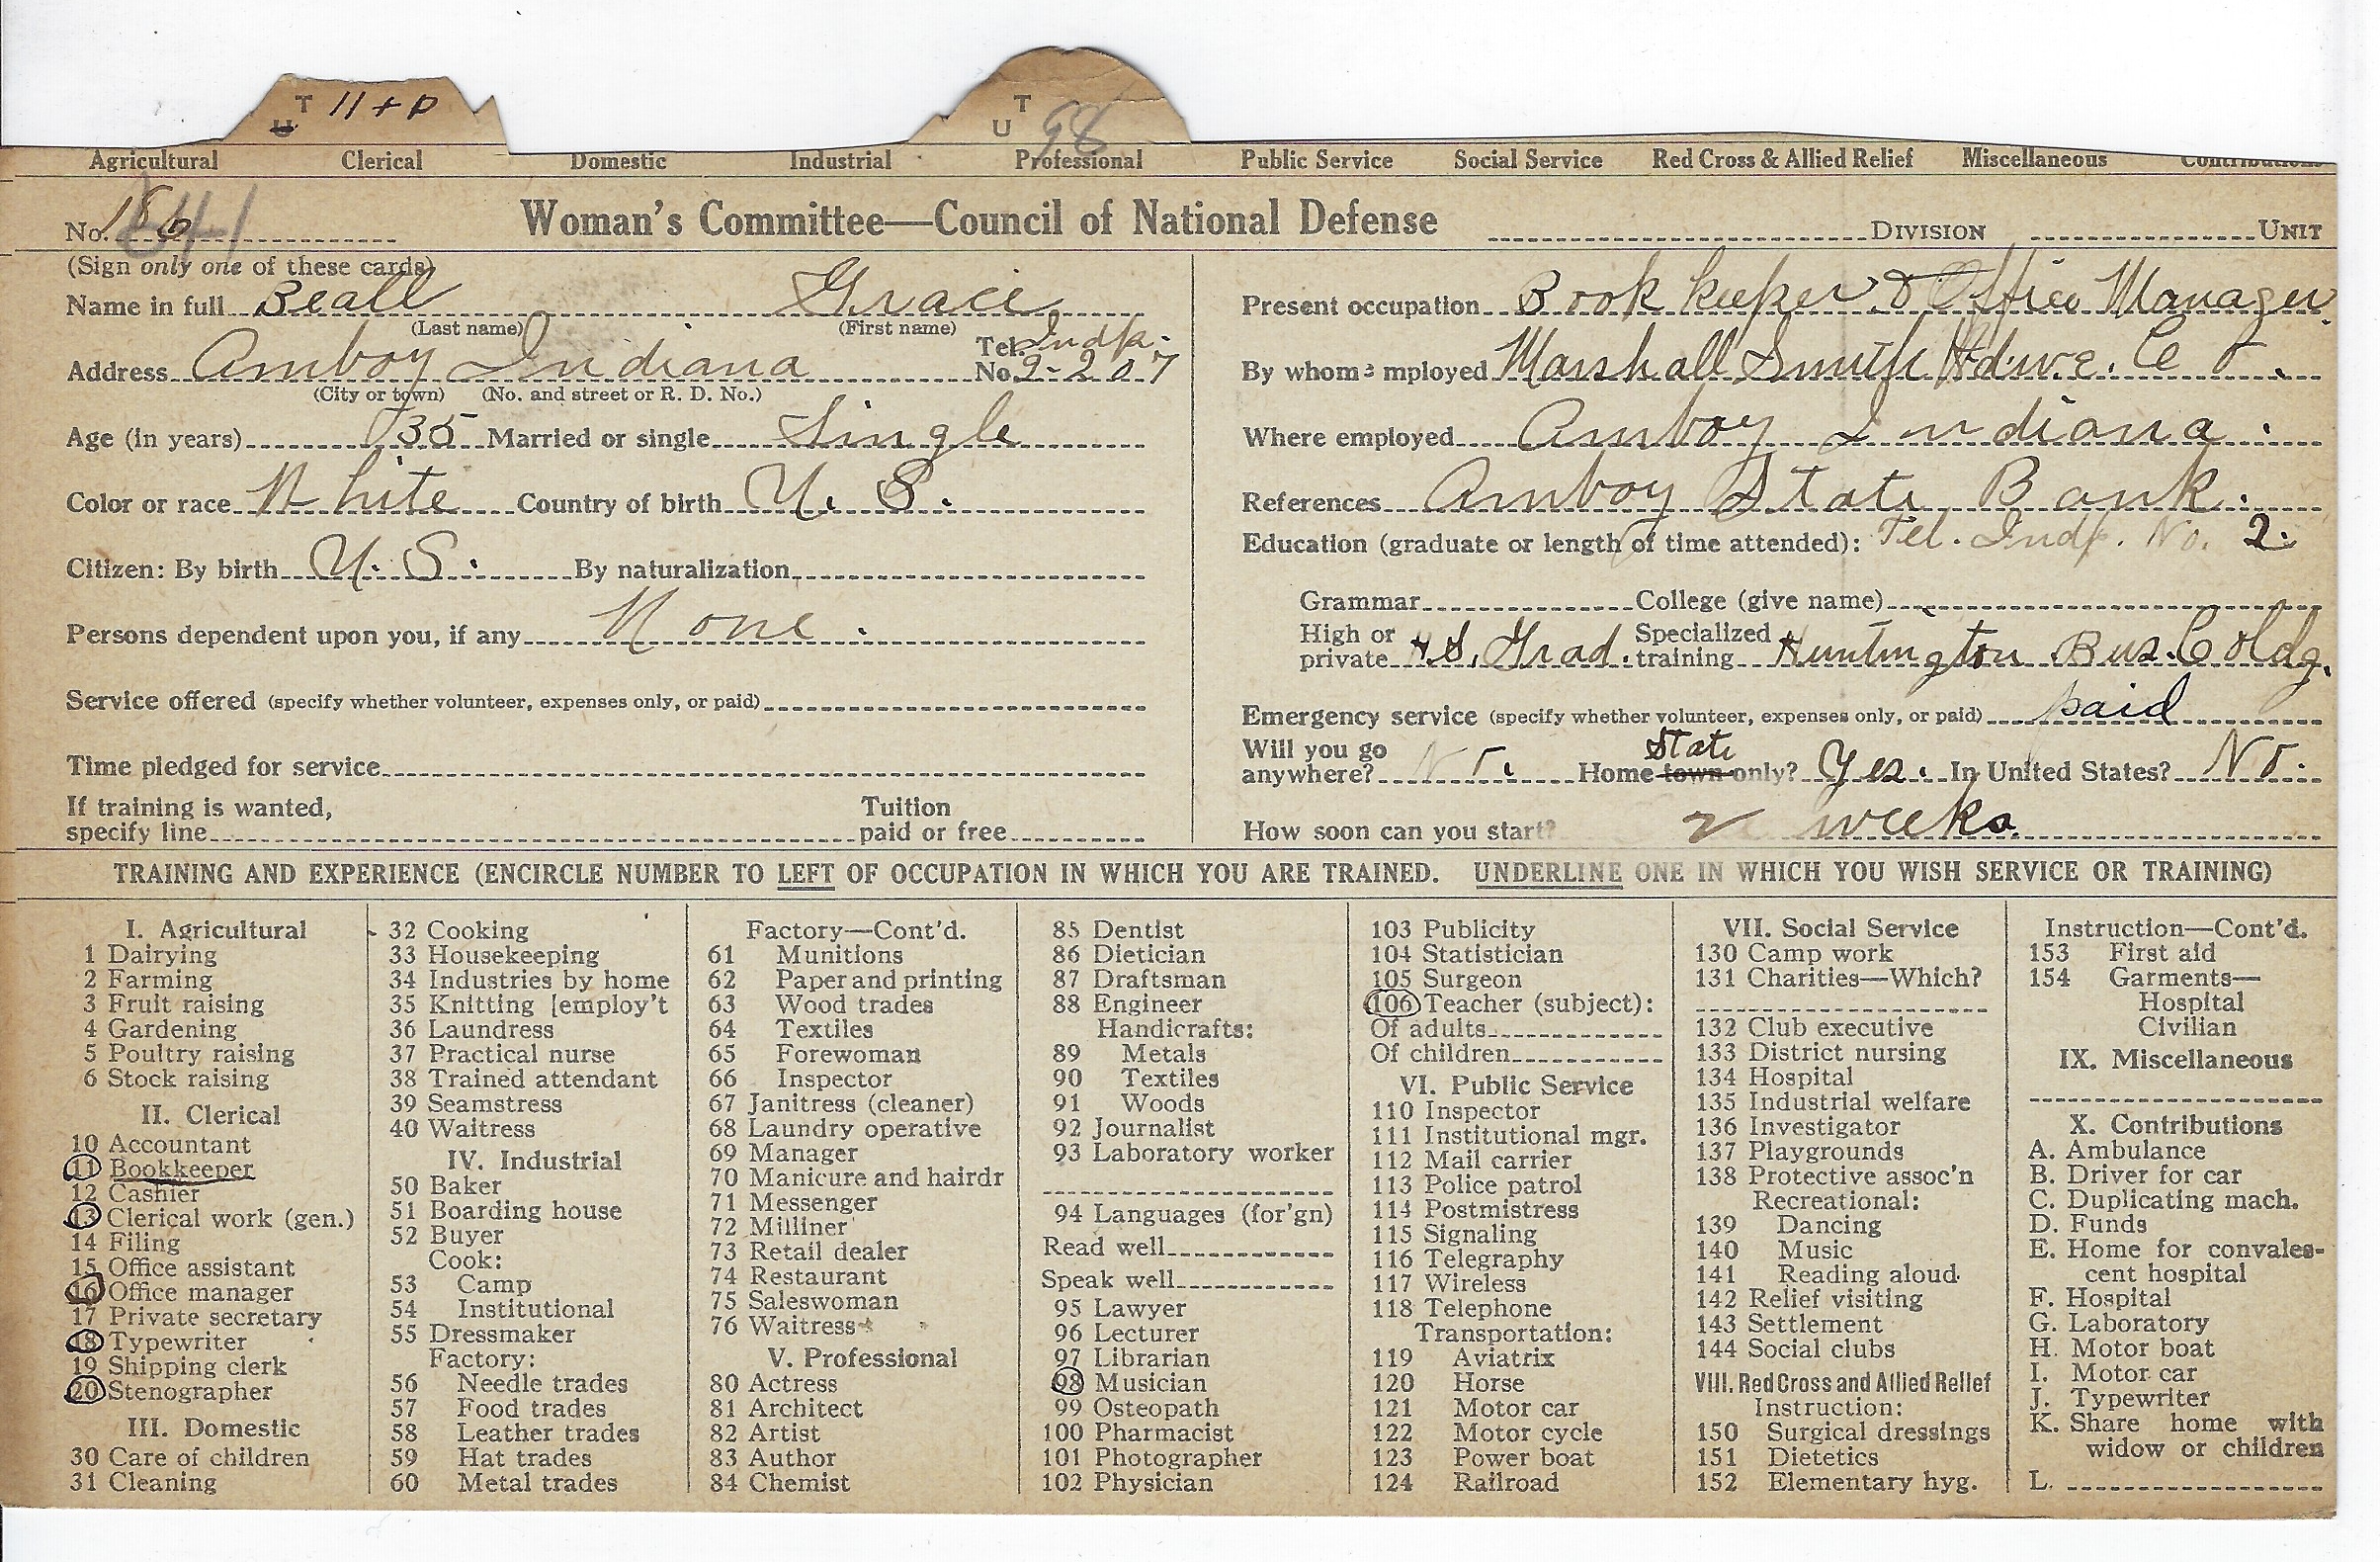 T 11+P
U
T
U 98
Agricultural Clerical Domestic Industrial Professional Public Service Social Service Red Cross & Allied Relief Miscellaneous Contributions
No. 186 Woman's Committee—Council of National Defense DIVISION UNIT
(Sign only one of these cards)
Name in full Beall Grace
(Last name) (First name)
Address Amboy Indiana Tel. Indp. No. 2-207
(City or town) (No. and street or R. D. No.)
Age (in years) 35 Married or single Single
Color or race White Country of birth U. S.
Citizen: By birth U. S. By naturalization
Persons dependent upon you, if any None.
Service offered (specify whether volunteer, expenses only, or paid)
Time pledged for service
If training is wanted, Tuition
specify line paid or free
Present occupation Book keeper & Office Manager
By whom employed Marshall Smith Hdwe. Co.
Where employed Amboy Indiana.
References Amboy State Bank.
Education (graduate or length of time attended): Tel. Indp. No. 2.
Grammar College (give name)
High or private H.S. Grad. Specialized training Huntington Bus. Coldg.
Emergency service (specify whether volunteer, expenses only, or paid) paid
State
Will you go anywhere? No. Home town only? Yes. In United States? No.
How soon can you start? 2 weeks.
TRAINING AND EXPERIENCE (ENCIRCLE NUMBER TO LEFT OF OCCUPATION IN WHICH YOU ARE TRAINED. UNDERLINE ONE IN WHICH YOU WISH SERVICE OR TRAINING)
I. Agricultural
1 Dairying
2 Farming
3 Fruit raising
4 Gardening
5 Poultry raising
6 Stock raising
II. Clerical
10 Accountant
11 Bookkeeper
12 Cashier
13 Clerical work (gen.)
14 Filing
15 Office assistant
16 Office manager
17 Private secretary
18 Typewriter
19 Shipping clerk
20 Stenographer
III. Domestic
30 Care of children
31 Cleaning
32 Cooking
33 Housekeeping
34 Industries by home
35 Knitting [employ't
36 Laundress
37 Practical nurse
38 Trained attendant
39 Seamstress
40 Waitress
IV. Industrial
50 Baker
51 Boarding house
52 Buyer
Cook:
53 Camp
54 Institutional
55 Dressmaker
Factory:
56 Needle trades
57 Food trades
58 Leather trades
59 Hat trades
60 Metal trades
Factory—Cont'd.
61 Munitions
62 Paper and printing
63 Wood trades
64 Textiles
65 Forewoman
66 Inspector
67 Janitress (cleaner)
68 Laundry operative
69 Manager
70 Manicure and hairdr
71 Messenger
72 Milliner
73 Retail dealer
74 Restaurant
75 Saleswoman
76 Waitress
V. Professional
80 Actress
81 Architect
82 Artist
83 Author
84 Chemist
85 Dentist
86 Dietician
87 Draftsman
88 Engineer
Handicrafts:
89 Metals
90 Textiles
91 Woods
92 Journalist
93 Laboratory worker
94 Languages (for'gn)
Read well
Speak well
95 Lawyer
96 Lecturer
97 Librarian
98 Musician
99 Osteopath
100 Pharmacist
101 Photographer
102 Physician
103 Publicity
104 Statistician
105 Surgeon
106 Teacher (subject):
Of adults
Of children
VI. Public Service
110 Inspector
111 Institutional mgr.
112 Mail carrier
113 Police patrol
114 Postmistress
115 Signaling
116 Telegraphy
117 Wireless
118 Telephone
Transportation:
119 Aviatrix
120 Horse
121 Motor car
122 Motor cycle
123 Power boat
124 Railroad
VII. Social Service
130 Camp work
131 Charities—Which?
132 Club executive
133 District nursing
134 Hospital
135 Industrial welfare
136 Investigator
137 Playgrounds
138 Protective assoc'n
Recreational:
139 Dancing
140 Music
141 Reading aloud
142 Relief visiting
143 Settlement
144 Social clubs
VIII. Red Cross and Allied Relief
Instruction:
150 Surgical dressings
151 Dietetics
152 Elementary hyg.
Instruction—Cont'd.
153 First aid
154 Garments—
Hospital
Civilian
IX. Miscellaneous
X. Contributions
A. Ambulance
B. Driver for car
C. Duplicating mach.
D. Funds
E. Home for convales-
cent hospital
F. Hospital
G. Laboratory
H. Motor boat
I. Motor car
J. Typewriter
K. Share home with
widow or children
L.